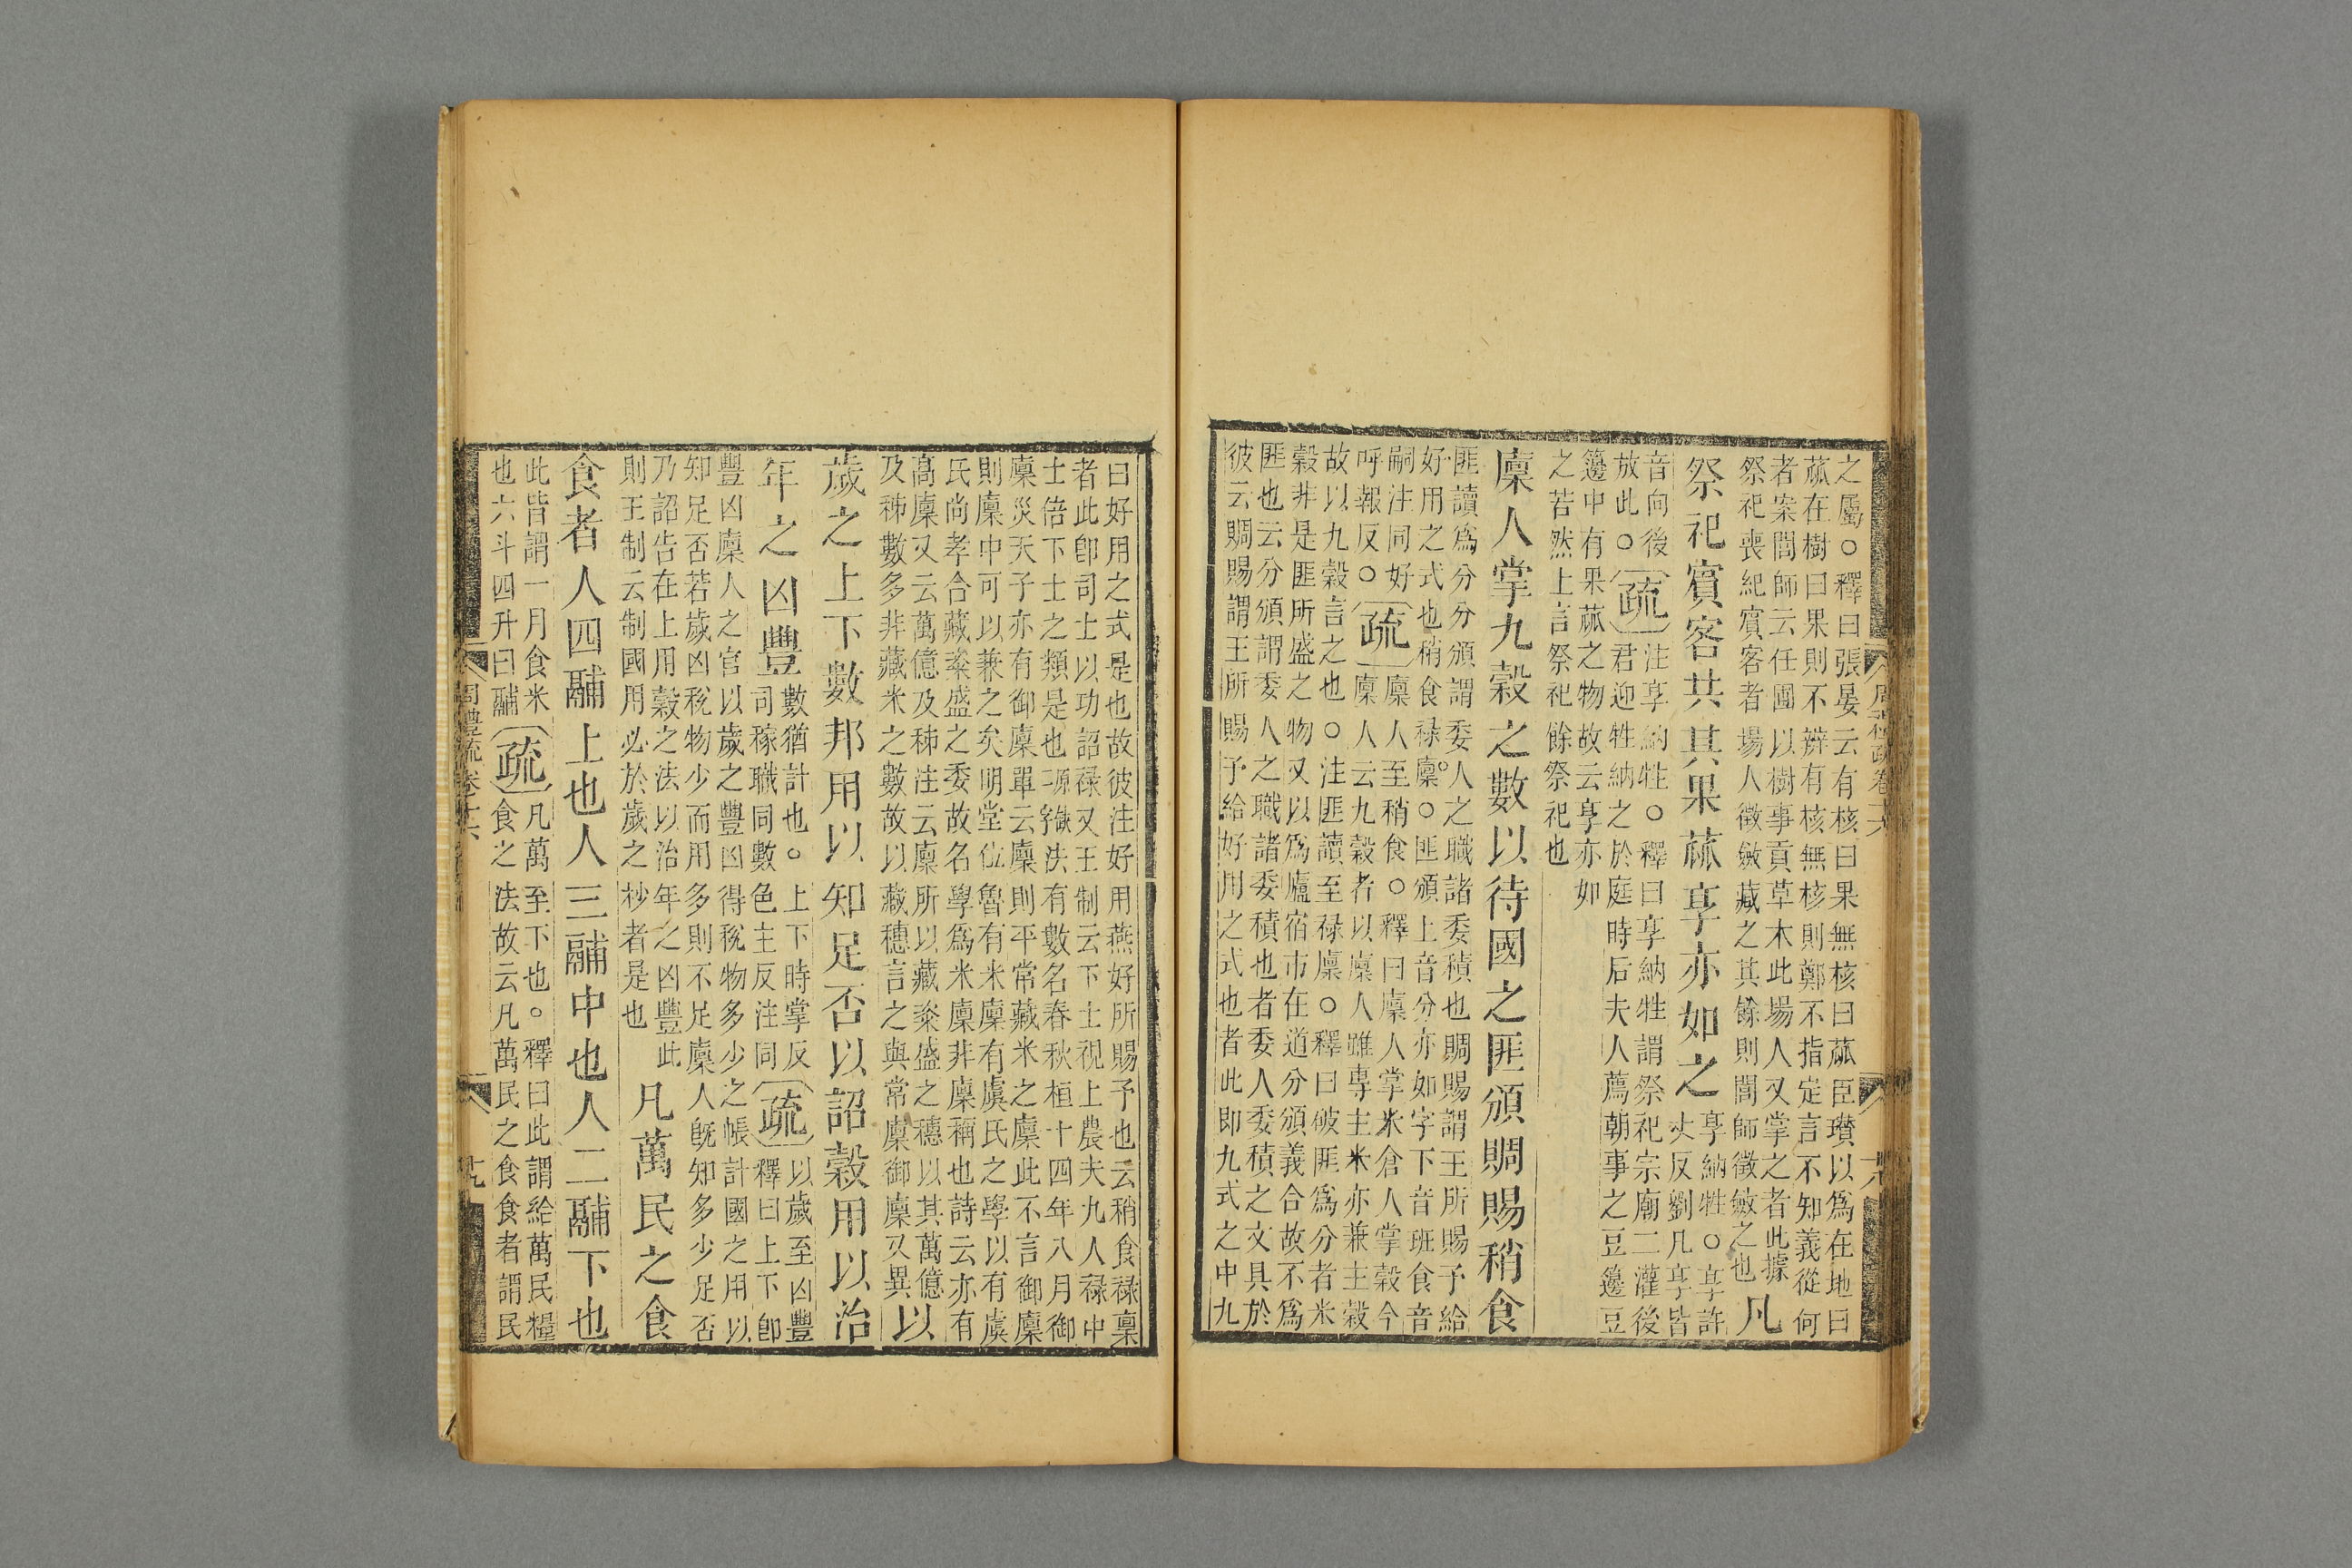 之屬○釋曰張晏云有核曰果無核曰蓏臣瓚以爲在地曰
蓏在樹曰果則不辨有核無核則鄭不指定言不知義從何
者案閭師云任圃以樹事貢草木此場人又掌之者此據
祭祀喪紀賓客者場人徵斂藏之其餘則閭師徵斂之也
凡
祭祀賓客共其果蓏享亦如之
享納牲○享許
丈反劉凡享皆
音向後
放此○
疏
注享納牲○釋曰享納牲謂祭祀宗廟二灌後
君迎牲納之於庭時后夫人薦朝事之豆籩豆
籩中有果蓏之物故云享亦如
之若然上言祭祀餘祭祀也
廩人掌九穀之數以待國之匪頒賙賜稍食
匪讀爲分分頒謂委人之職諸委積也賙賜謂王所賜予給
好用之式也稍食祿廩○匪頒上音分亦如字下音班食音
嗣注同好
呼報反○
疏
廩人至稍食○釋曰廩人掌米倉人掌穀今
廩人云九穀者以廩人雖專主米亦兼主穀
故以九穀言之也○注匪讀至祿廩○釋曰破匪爲分者米
穀非是匪所盛之物又以爲廬宿市在道分頒義合故不爲
匪也云分頒謂委人之職諸委積也者委人委積之文具於
彼云賙賜謂王所賜予給好用之式也者此即九式之中九
周禮疏卷十六
十八
曰好用之式是也故彼注好用燕好所賜予也云稍食祿稟
者此即司士以功詔祿又王制云下士視上農夫九人祿中
士倍下士之類是也
有數名春秋桓十四年八月御
廩災天子亦有御廩單云廩則平常藏米之廩此不言御廩
則廩中可以兼之矣明堂位魯有米廩有虞氏之學以有虞
民尚孝合藏粢盛之委故名學爲米廩非廩稱也詩云亦有
高廩又云萬億及秭注云廩所以藏粢盛之穗以其萬億
及秭數多非藏米之數故以藏穗言之與常廩御廩又異
以
歲之上下數邦用以知足否以詔穀用以治
年之凶豐
數猶計也。上下時掌反
司稼職同數色主反注同
疏
以歲至凶豐
釋曰上下即
豐凶廩人之官以歲之豐凶得稅物多少之帳計國之用以
知足否若歲凶稅物少而用多則不足廩人旣知多少足否
乃詔告在上用穀之法以治年之凶豐此
則王制云制國用必於歲之杪者是也
凡萬民之食
食者人四鬴上也人三鬴中也人二鬴下也
此皆謂一月食米
也六斗四升曰鬴
疏
凡萬至下也。釋曰此謂給萬民糧
食之法故云凡萬民之食食者謂民
周禮疏卷十六
十九